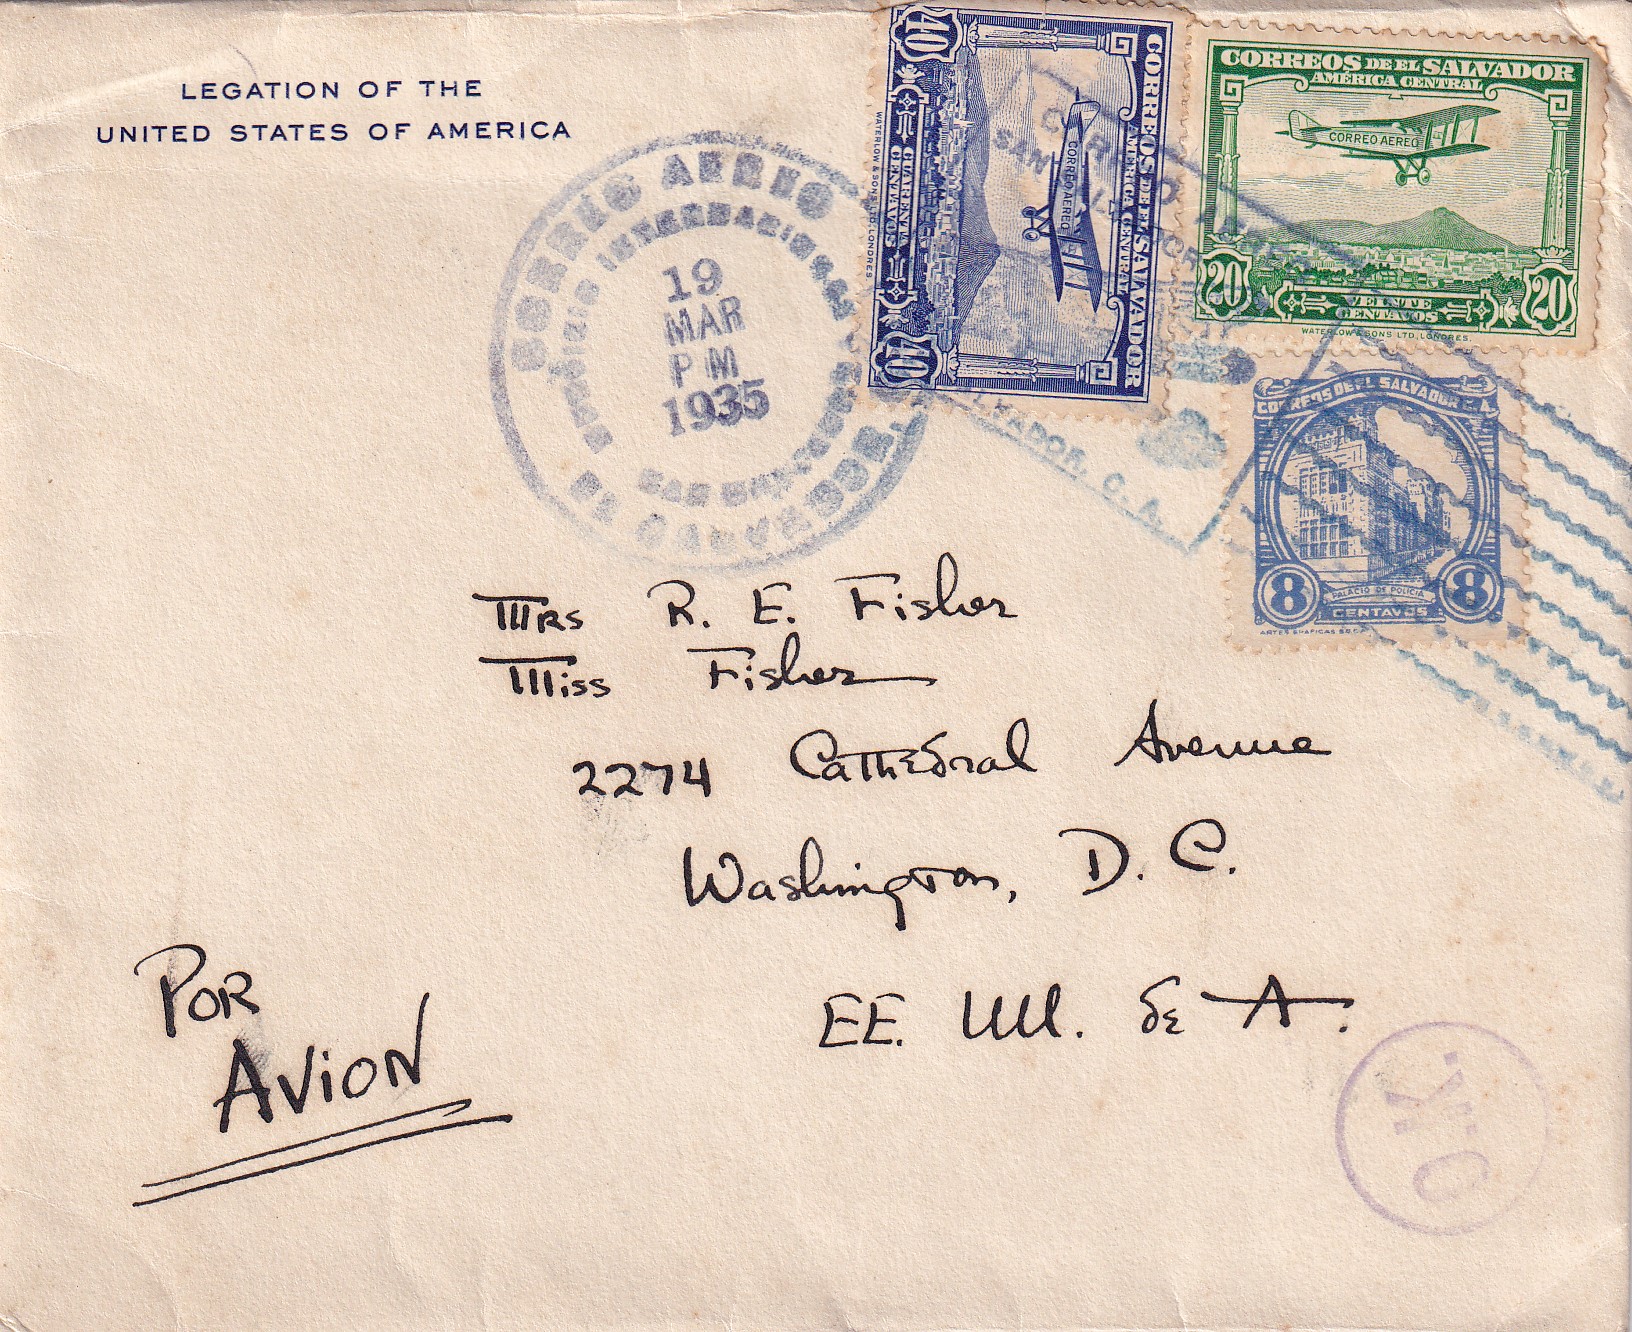 LEGATION OF THE
UNITED STATES OF AMERICA
CORREO AEREO
SERVICIO INTERNACIONAL
19
MAR
PM
1935
SAN SALVADOR
EL SALVADOR
40
40
CORREOS DE EL SALVADOR
AMÉRICA CENTRAL
CORREO AEREO
CUARENTA
CENTAVOS
WATERLOW & SONS LTD, LONDRES
CORREO AEREO
SAN SALVADOR
SALVADOR, C. A.
CORREOS DE EL SALVADOR
AMÉRICA CENTRAL
CORREO AEREO
20 VEINTE 20
CENTAVOS
WATERLOW & SONS LTD, LONDRES.
CORREOS DE EL SALVADOR C.A.
8 PALACIO DE POLICIA 8
CENTAVOS
ARTES GRAFICAS
Mrs R. E. Fisher
Miss Fisher
2274 Cathedral Avenue
Washington, D. C.
EE. UU. de A.
POR
AVION
O.K.